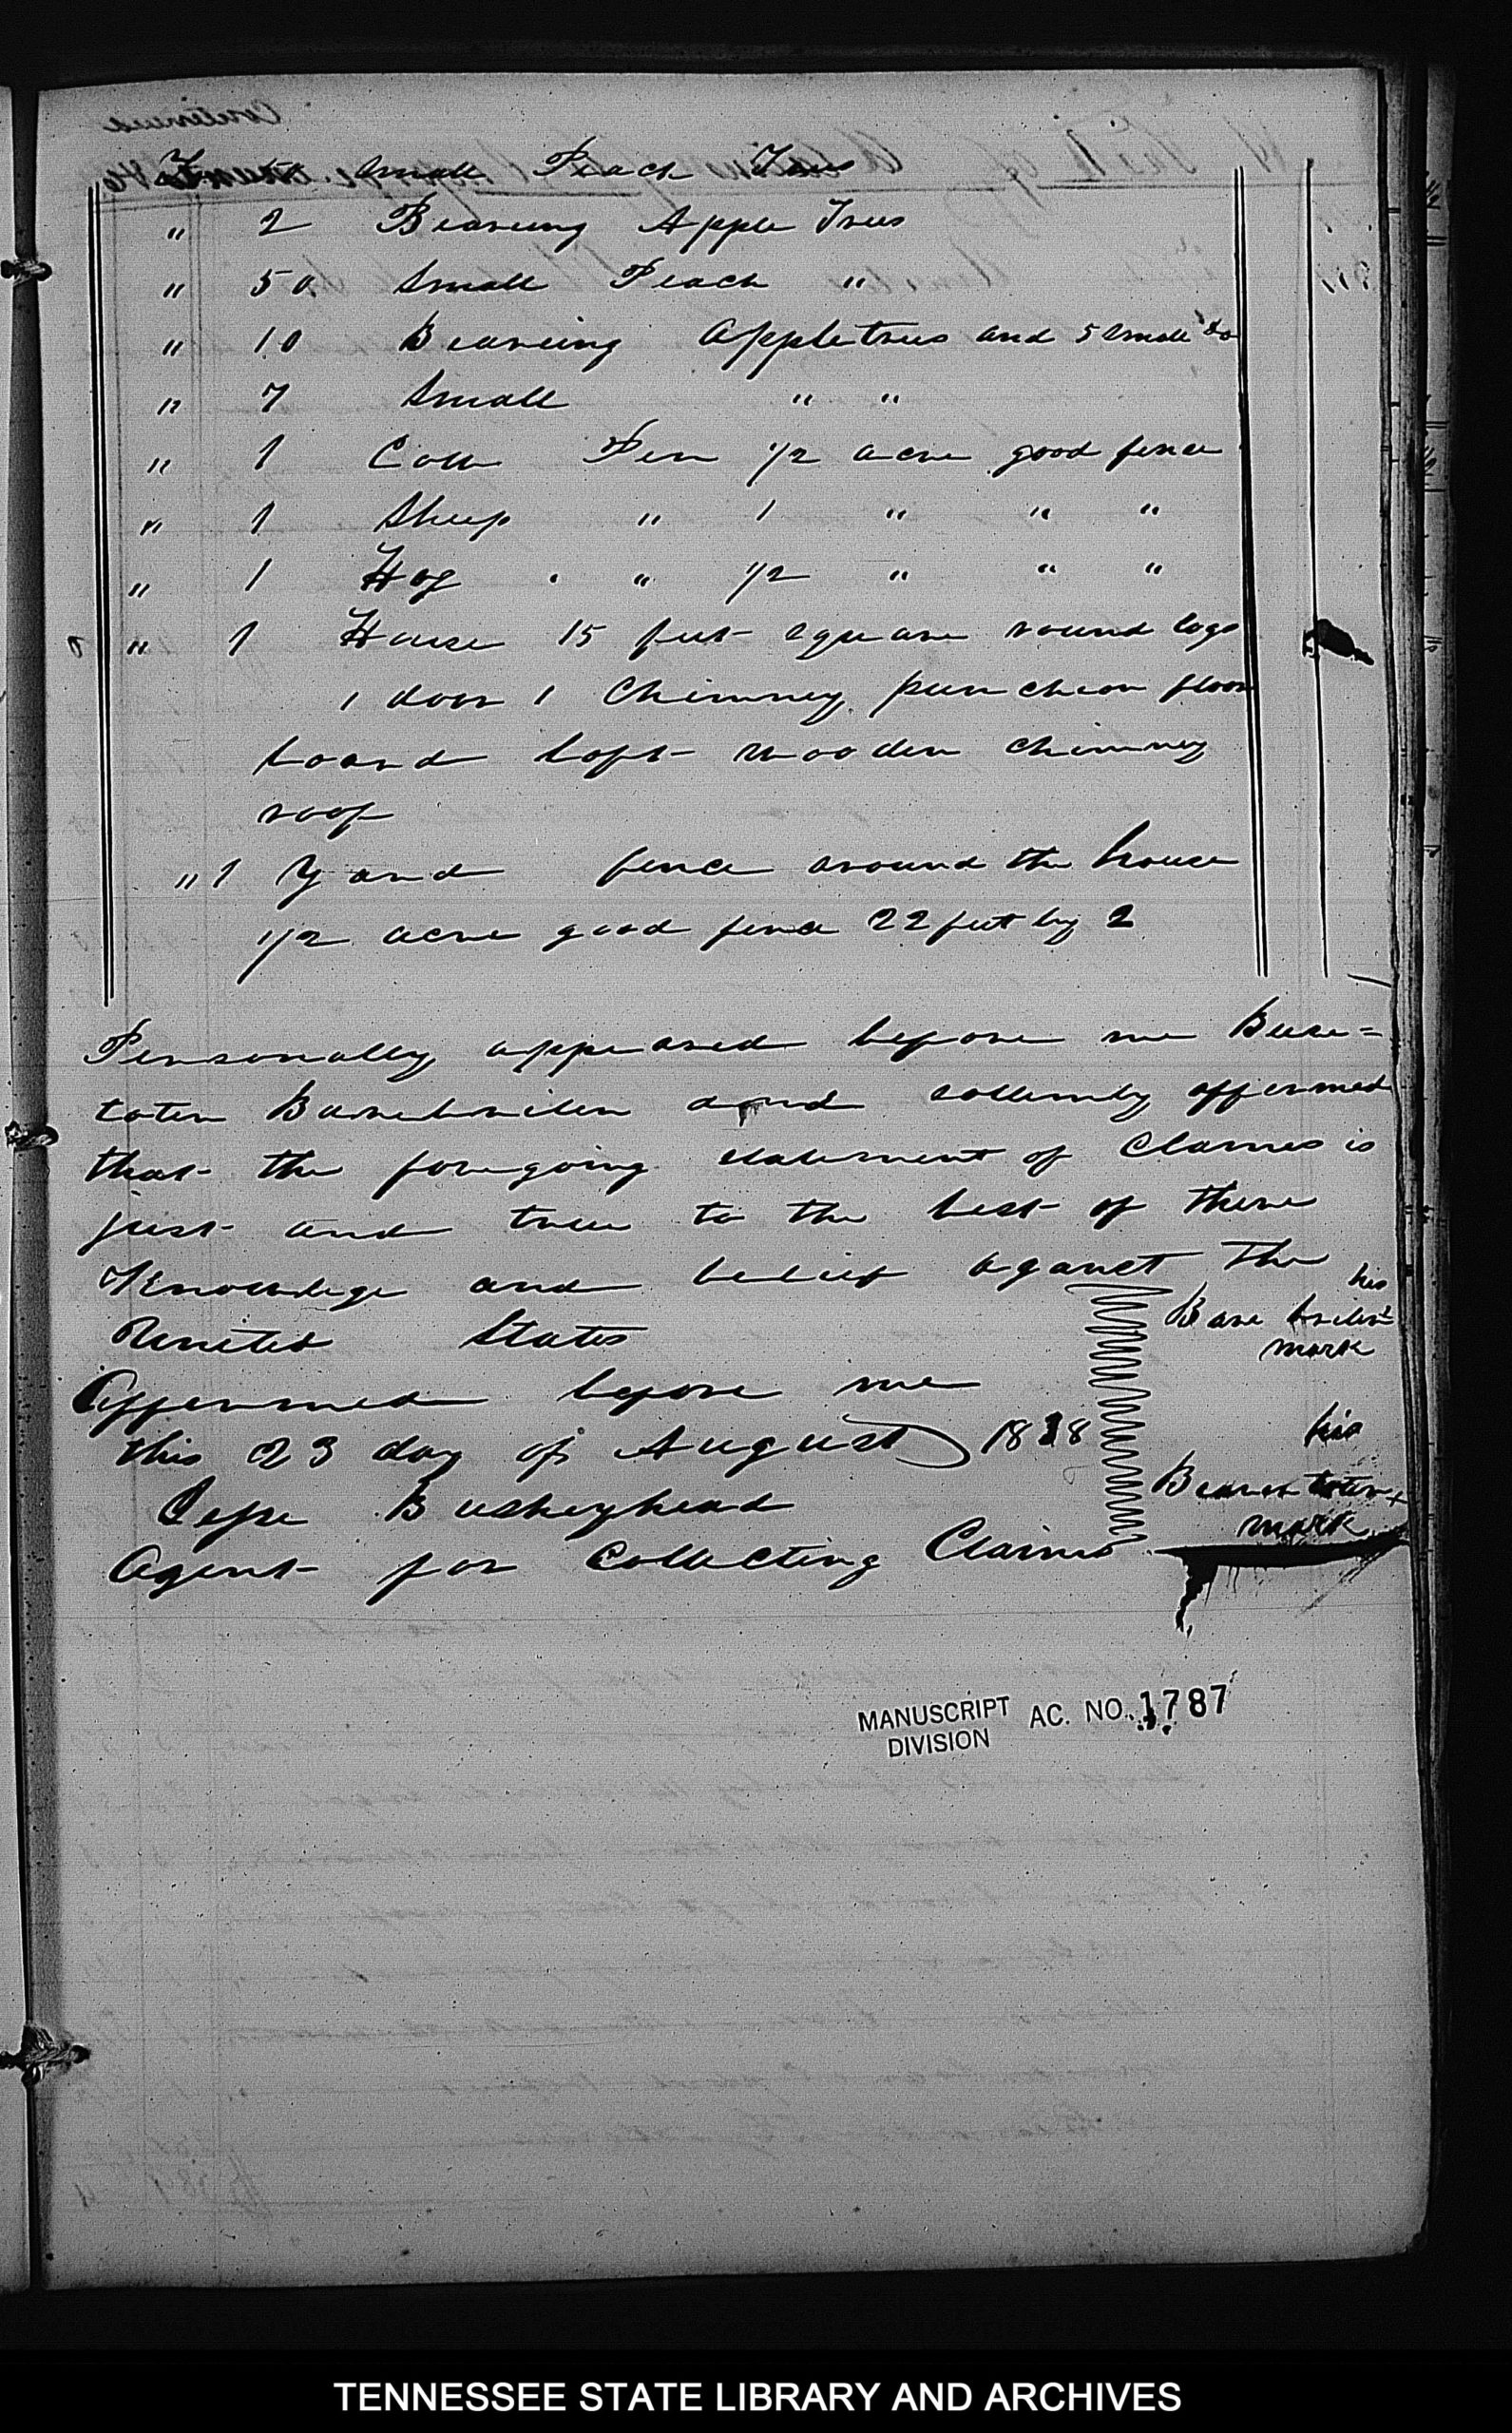 Small Peach Trees
" 2 Beareing Apple Trees
" 50 Small Peach "
" 10 Beareing Appletrees and 5 small do
" 7 Small " "
" 1 Colt Pen 1/2 acre good fence
" 1 Sheep " 1 " " "
" 1 Hog " 1/2 " " "
" 1 House 15 feet square round logs
1 door 1 Chimney puncheon floor
board loft wooden chimney
roof
" 1 Yard fence around the house
1/2 acre good fence 22 feet by 2
Personally appeared before me
and sollemly affermed
that the foregoing statement of Clames is
just and true to the best of there
Knowledge and belief aganst The
United States
his
Bare
mark
Affermed before me
this 23 day of August 1838
his
mark
Jesse Busheyhead
Agent for Collecting Claims
MANUSCRIPT DIVISION AC. NO. 1787
TENNESSEE STATE LIBRARY AND ARCHIVES